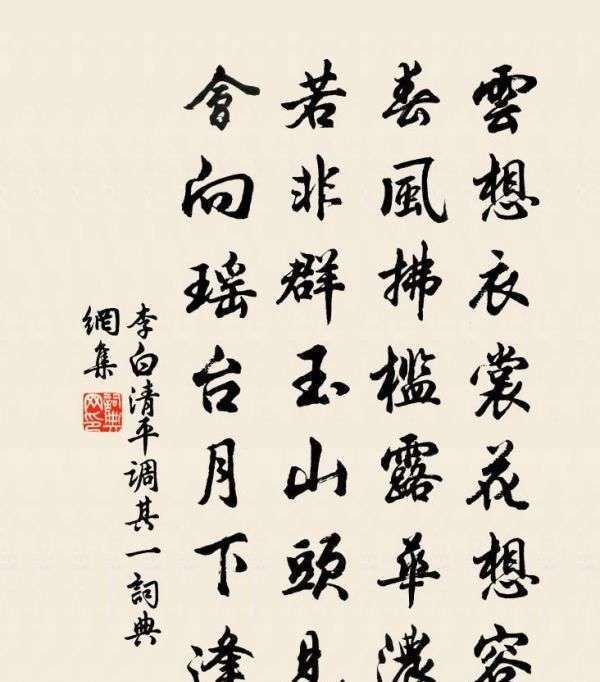 雲想衣裳花想容
春風拂檻露華濃
若非群玉山頭見
會向瑶台月下逢
李白清平调其一詞典
網集
詞典